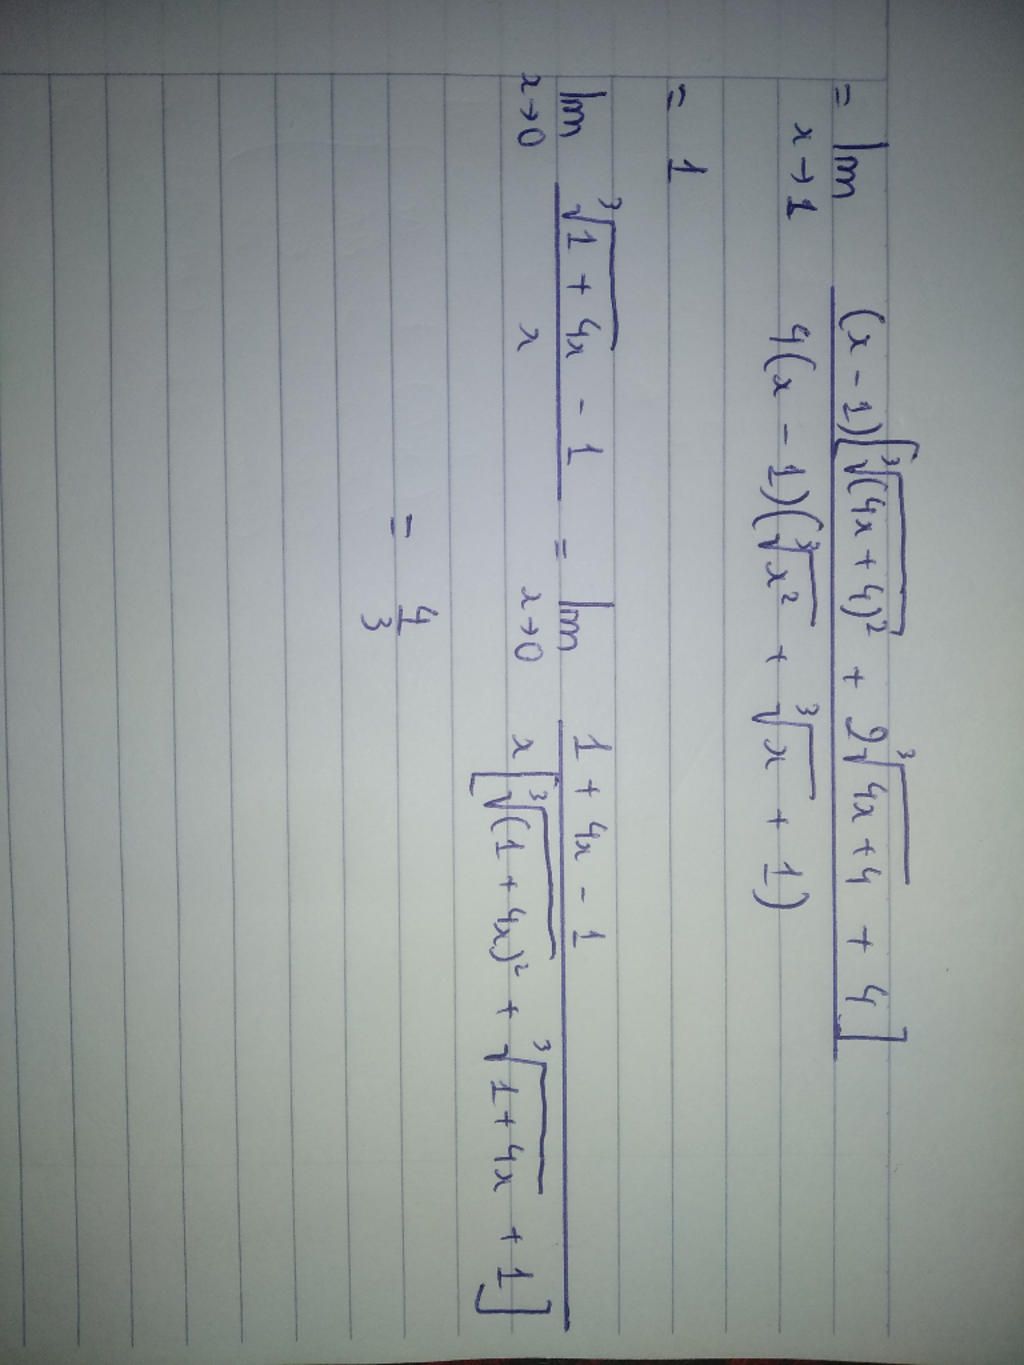 = lim x→1 (x - 1)[∛(4x + 4)² + 2∛4x + 4 + 4] / 4(x - 1)(∛x² + ∛x + 1)
= 1
lim x→0 ∛1 + 4x - 1 / x = lim x→0 1 + 4x - 1 / x[∛(1 + 4x)² + ∛1 + 4x + 1]
= 4/3